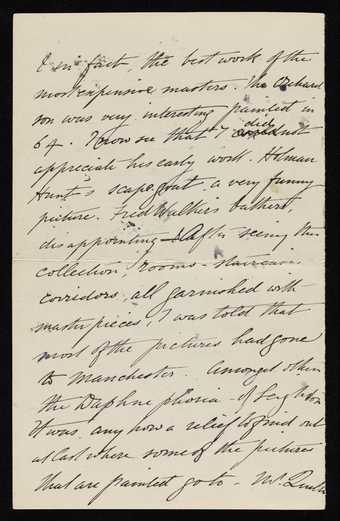 & in fact, the best work of the
most expensive masters. The Orchard
son was very interesting painted in
64. I now see that I did not
appreciate his early work. Holman
Hunt's scape goat a very funny
picture. Fred Walker's bathers,
disappointing - After seeing the
collection, rooms - staircases
corridors, all garnished with
masterpieces, I was told that
most of the pictures had gone
to Manchester. Amongst others
the Daphnephoria - of Leighton
It was any how a relief to find out
at last where some of the pictures
that are painted go to - Mr